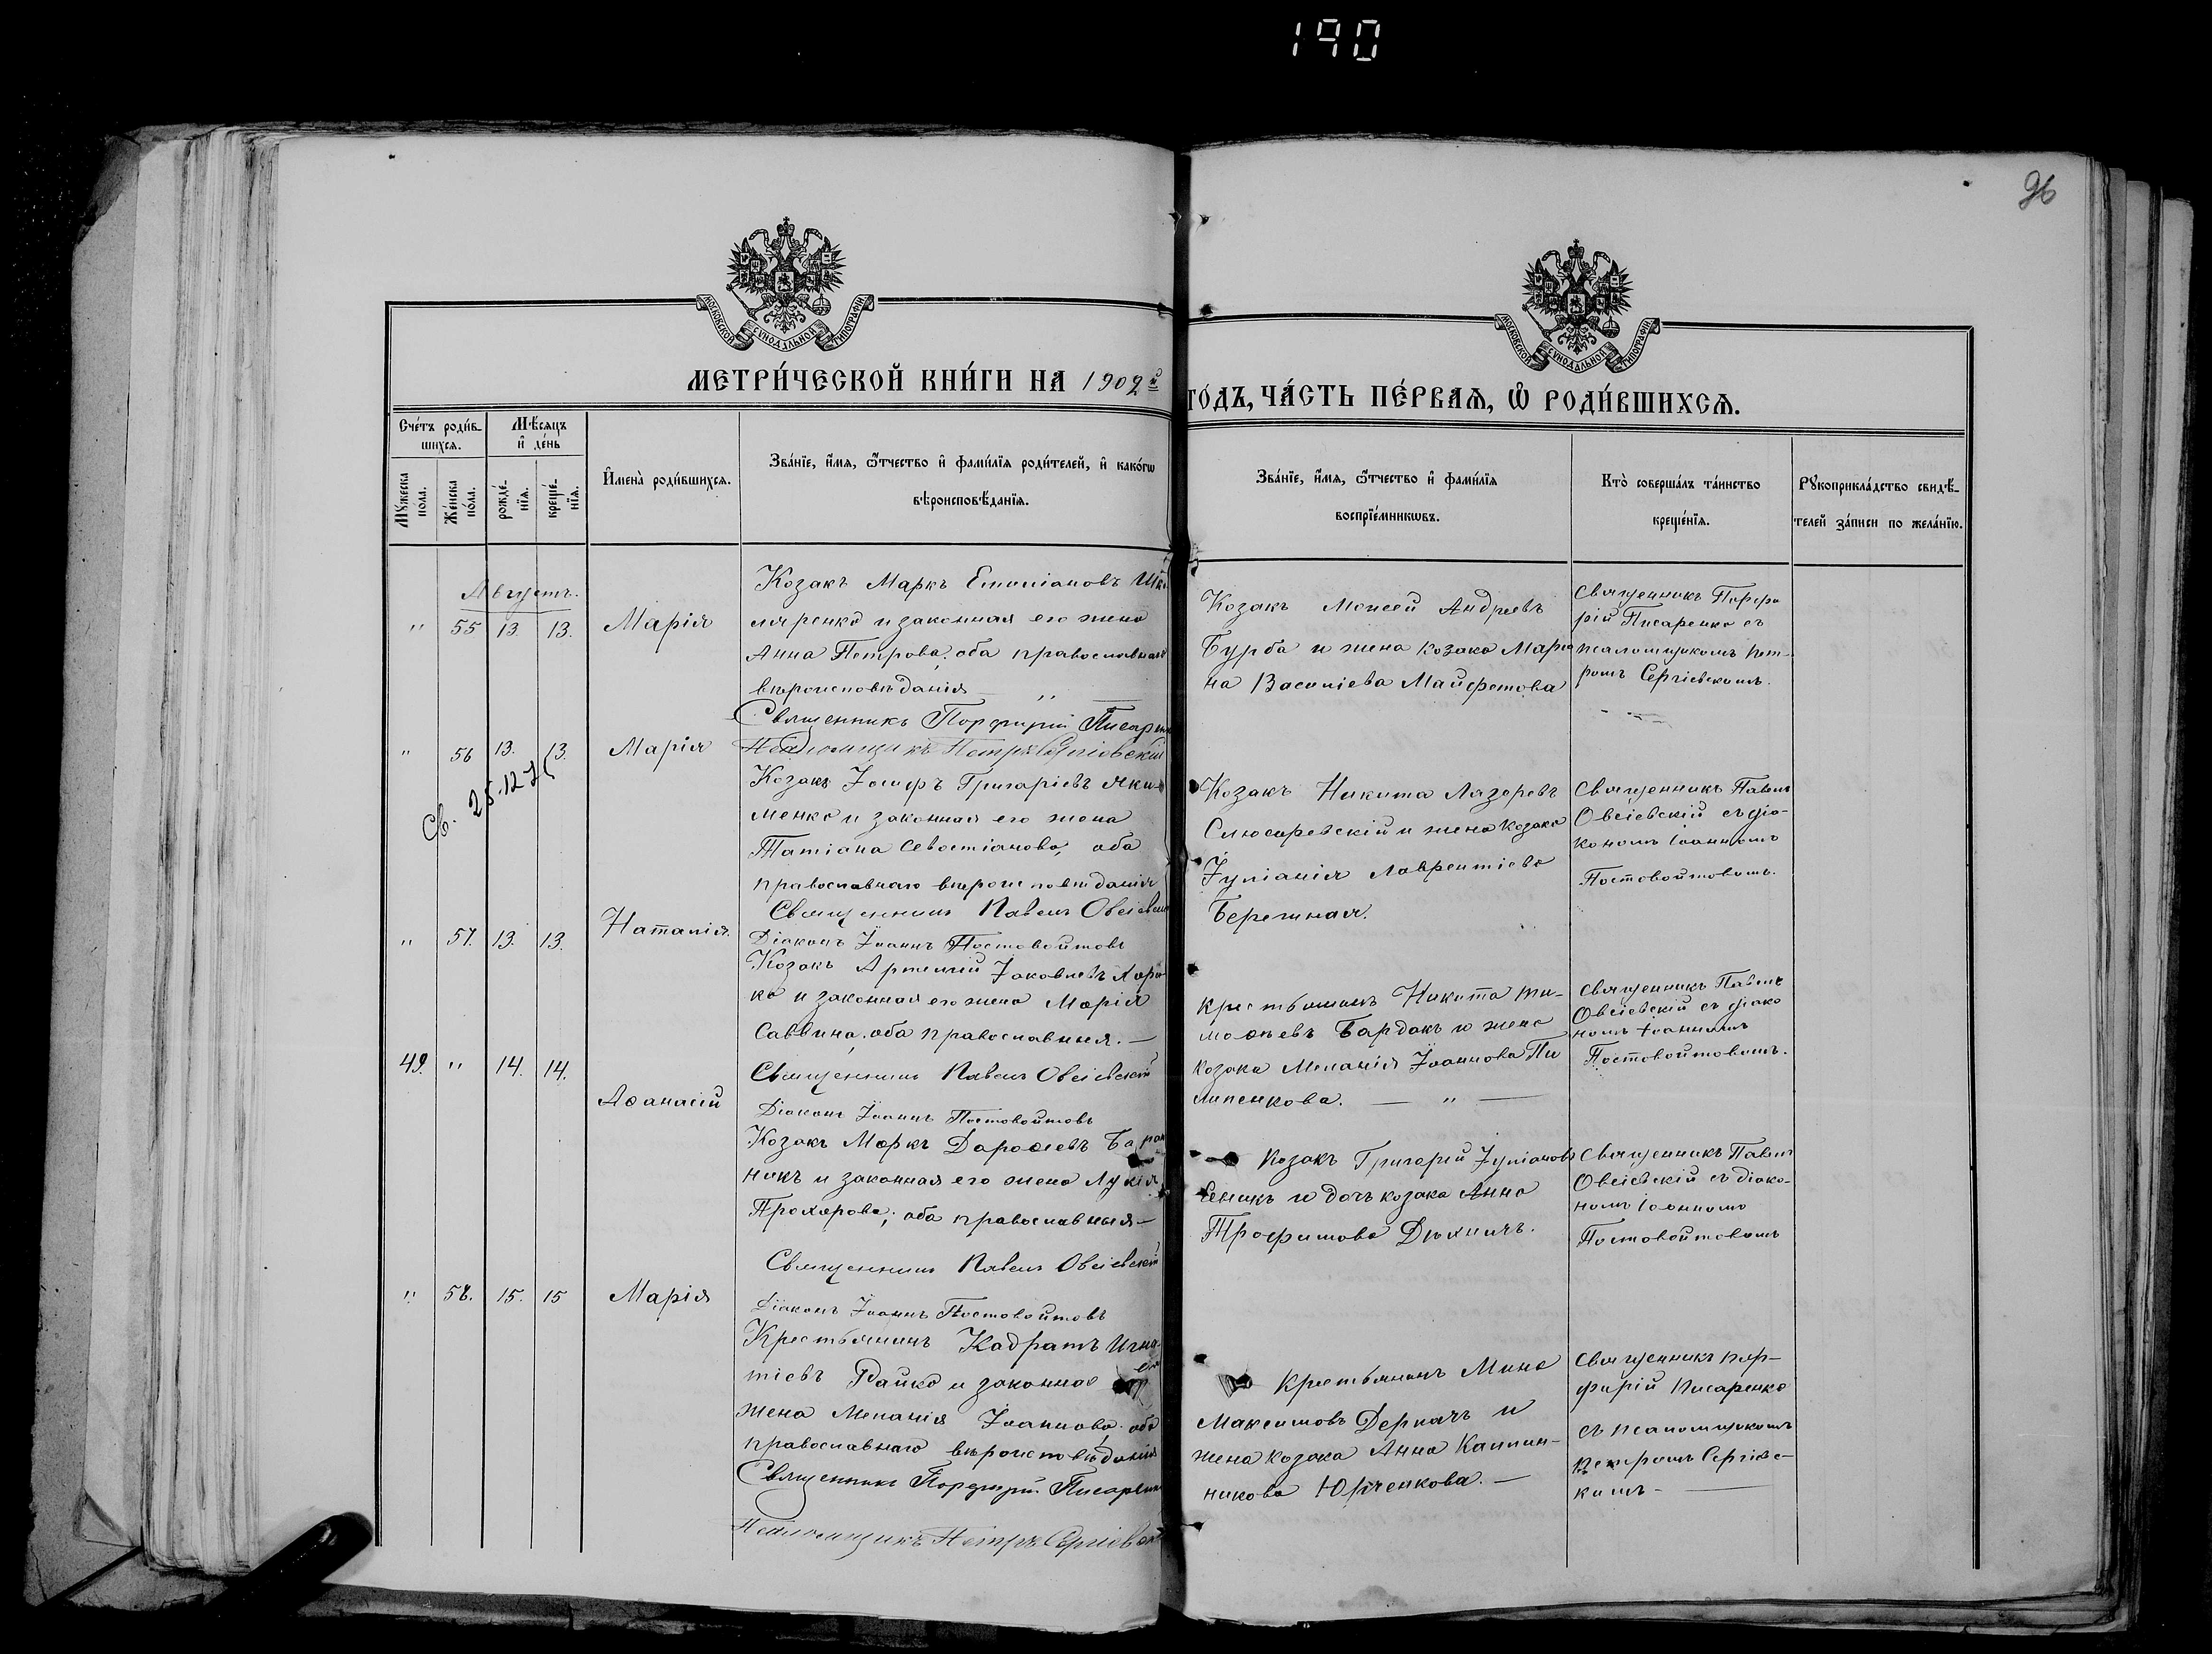 190
96
МОСКОВСКОЙ СѴНОДАЛЬНОЙ ТИПОГРАФІИ
МОСКОВСКОЙ СѴНОДАЛЬНОЙ ТИПОГРАФІИ
МЕТРИ́ЧЕСКОЙ КНИ́ГИ НА 1902 й
ГО́ДЪ, ЧА́СТЬ ПЕ́РВАЯ, Ѡ҆ РОДИ́ВШИХСЯ.
Сче́тъ роди́в-
шихся.
Мѣ́сяцъ
и҆ де́нь
Му́жеска по́ла.
Же́нска по́ла.
рожде́-
нїя.
креще́-
нїя.
И҆мена̀ роди́вшихся.
Зва́нїе, и҆́мя, ѻ҆́тчество и҆ фами́лїя роди́телей, и҆ како́гѡ
вѣроисповѣ́данїя.
Зва́нїе, и҆́мя, ѻ҆́тчество и҆ фами́лїя
воспрїе́мникѡвъ.
Кто̀ соверша́лъ та́инство
креще́нїя.
Рукоприкла́дство свидѣ́-
телей за́писи по жела́нїю.
Августъ.
" 55 13. 13. Марія
Козакъ Маркъ Емиліановъ Шк
ляренко и законная его жена
Анна Петрова, оба православнаго
вѣроисповѣданія — " —
Священникъ Порфирій Писаренко
Псаломщикъ Петръ Сергіевскій
Козакъ Моисей Андреевъ
Бурба и жена козака Марі
на Василіева Майфетова
Священникъ Порфи
рій Писаренко съ
псаломщикомъ Пет-
ромъ Сергіевскимъ.
" 56 13. 13. Марія
Св. 25.12.71
Козакъ Іосифъ Григоріевъ Яки-
менко и законная его жена
Татіана Севостіанова, оба
православнаго вѣроисповѣданія
Священникъ Павелъ Овсіевскій
Діаконъ Іоаннъ Постовойтовъ
Козакъ Никита Лазаревъ
Слюсаревскій и жена козака
Іуліанія Лаврентіева
Бережная.
Священникъ Павелъ
Овсіевскій съ діа-
кономъ Іоанномъ
Постовойтовымъ.
" 57. 13. 13. Наталія.
Козакъ Артемій Іаковлевъ Хар
ко и законная его жена Марія
Саввина, оба православныя. —
Священникъ Павелъ Овсіевскій
Діаконъ Іоаннъ Постовойтовъ
Крестьянинъ Никита Ти-
моѳеевъ Бардакъ и жена
козака Меланія Іоаннова Пи
липенкова. — " —
Священникъ Павелъ
Овсіевскій съ діако
номъ Іоанномъ
Постовойтовымъ.
49. " 14. 14. Аѳанасій
Козакъ Маркъ Дороѳеевъ Баран
никъ и законная его жена Лукія
Прохорова; оба православныя —
Священникъ Павелъ Овсіевскій
Діаконъ Іоаннъ Постовойтовъ
Козакъ Григорій Іуліановъ
Сеникъ и дочь козака Анна
Трофимова Дюхничъ.
Священникъ Павелъ
Овсіевскій съ діако-
номъ Іоанномъ
Постовойтовымъ
" 58. 15. 15 Марія
Крестьянинъ Кадратъ Игна
тіевъ Райко и законная его
жена Меланія Іоаннова оба
православнаго вѣроисповѣданія
Священникъ Порфирій Писаренко
Псаломщикъ Петръ Сергіевскій
Крестьянинъ Мина
Максимовъ Деркачъ и
жена козака Анна Каллин-
никова Юрченкова. —
Священникъ Пор-
фирій Писаренко
съ псаломщикомъ
Петромъ Сергіевс-
кимъ —